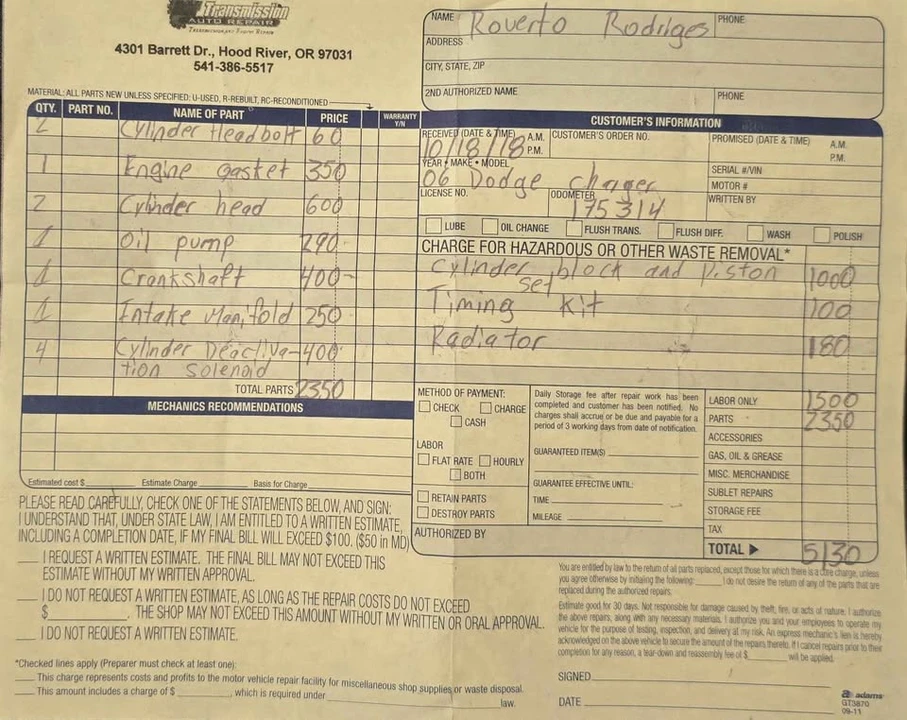 Transmission
AUTO REPAIR
4301 Barrett Dr., Hood River, OR 97031
541-386-5517
NAME Roverto Rodriges PHONE
ADDRESS
CITY, STATE, ZIP
2ND AUTHORIZED NAME PHONE
MATERIAL: ALL PARTS NEW UNLESS SPECIFIED: U-USED, R-REBUILT, RC-RECONDITIONED
QTY. PART NO. NAME OF PART PRICE WARRANTY Y/N
2 Cylinder Headbolt 60
1 Engine gasket 350
2 Cylinder head 600
1 Oil pump 290
1 Crankshaft 400
1 Intake Manifold 250
4 Cylinder Deactiva- 400
tion solenoid
TOTAL PARTS 2350
CUSTOMER'S INFORMATION
RECEIVED (DATE & TIME) 10/18/18 A.M. P.M. CUSTOMER'S ORDER NO. PROMISED (DATE & TIME) A.M. P.M.
YEAR • MAKE • MODEL 06 Dodge Chager SERIAL #/VIN
MOTOR #
LICENSE NO. ODOMETER 175314 WRITTEN BY
LUBE OIL CHANGE FLUSH TRANS. FLUSH DIFF. WASH POLISH
CHARGE FOR HAZARDOUS OR OTHER WASTE REMOVAL*
Cylinder block and Piston 1000
set
Timing Kit 100
Radiator 180
MECHANICS RECOMMENDATIONS
Estimated cost $ Estimate Charge Basis for Charge
METHOD OF PAYMENT:
CHECK CHARGE
CASH
LABOR
FLAT RATE HOURLY
BOTH
RETAIN PARTS
DESTROY PARTS
AUTHORIZED BY
Daily Storage fee after repair work has been
completed and customer has been notified. No
charges shall accrue or be due and payable for a
period of 3 working days from date of notification.
GUARANTEED ITEM(S)
GUARANTEE EFFECTIVE UNTIL:
TIME
MILEAGE
LABOR ONLY 1500
PARTS 2350
ACCESSORIES
GAS, OIL & GREASE
MISC. MERCHANDISE
SUBLET REPAIRS
STORAGE FEE
TAX
TOTAL ▶ 5130
PLEASE READ CAREFULLY, CHECK ONE OF THE STATEMENTS BELOW, AND SIGN:
I UNDERSTAND THAT, UNDER STATE LAW, I AM ENTITLED TO A WRITTEN ESTIMATE,
INCLUDING A COMPLETION DATE, IF MY FINAL BILL WILL EXCEED $100. ($50 in MD)
I REQUEST A WRITTEN ESTIMATE. THE FINAL BILL MAY NOT EXCEED THIS
ESTIMATE WITHOUT MY WRITTEN APPROVAL.
I DO NOT REQUEST A WRITTEN ESTIMATE, AS LONG AS THE REPAIR COSTS DO NOT EXCEED
$ . THE SHOP MAY NOT EXCEED THIS AMOUNT WITHOUT MY WRITTEN OR ORAL APPROVAL.
I DO NOT REQUEST A WRITTEN ESTIMATE.
*Checked lines apply (Preparer must check at least one):
This charge represents costs and profits to the motor vehicle repair facility for miscellaneous shop supplies or waste disposal.
This amount includes a charge of $ , which is required under law.
You are entitled by law to the return of all parts replaced, except those for which there is a core charge, unless
you agree otherwise by initialing the following: I do not desire the return of any of the parts that are
replaced during the authorized repairs.
Estimate good for 30 days. Not responsible for damage caused by theft, fire, or acts of nature. I authorize
the above repairs, along with any necessary materials. I authorize you and your employees to operate my
vehicle for the purpose of testing, inspection, and delivery at my risk. An express mechanic's lien is hereby
acknowledged on the above vehicle to secure the amount of the repairs thereto. If I cancel repairs prior to their
completion for any reason, a tear-down and reassembly fee of $ will be applied.
SIGNED
DATE
adams
GT3870
09-11